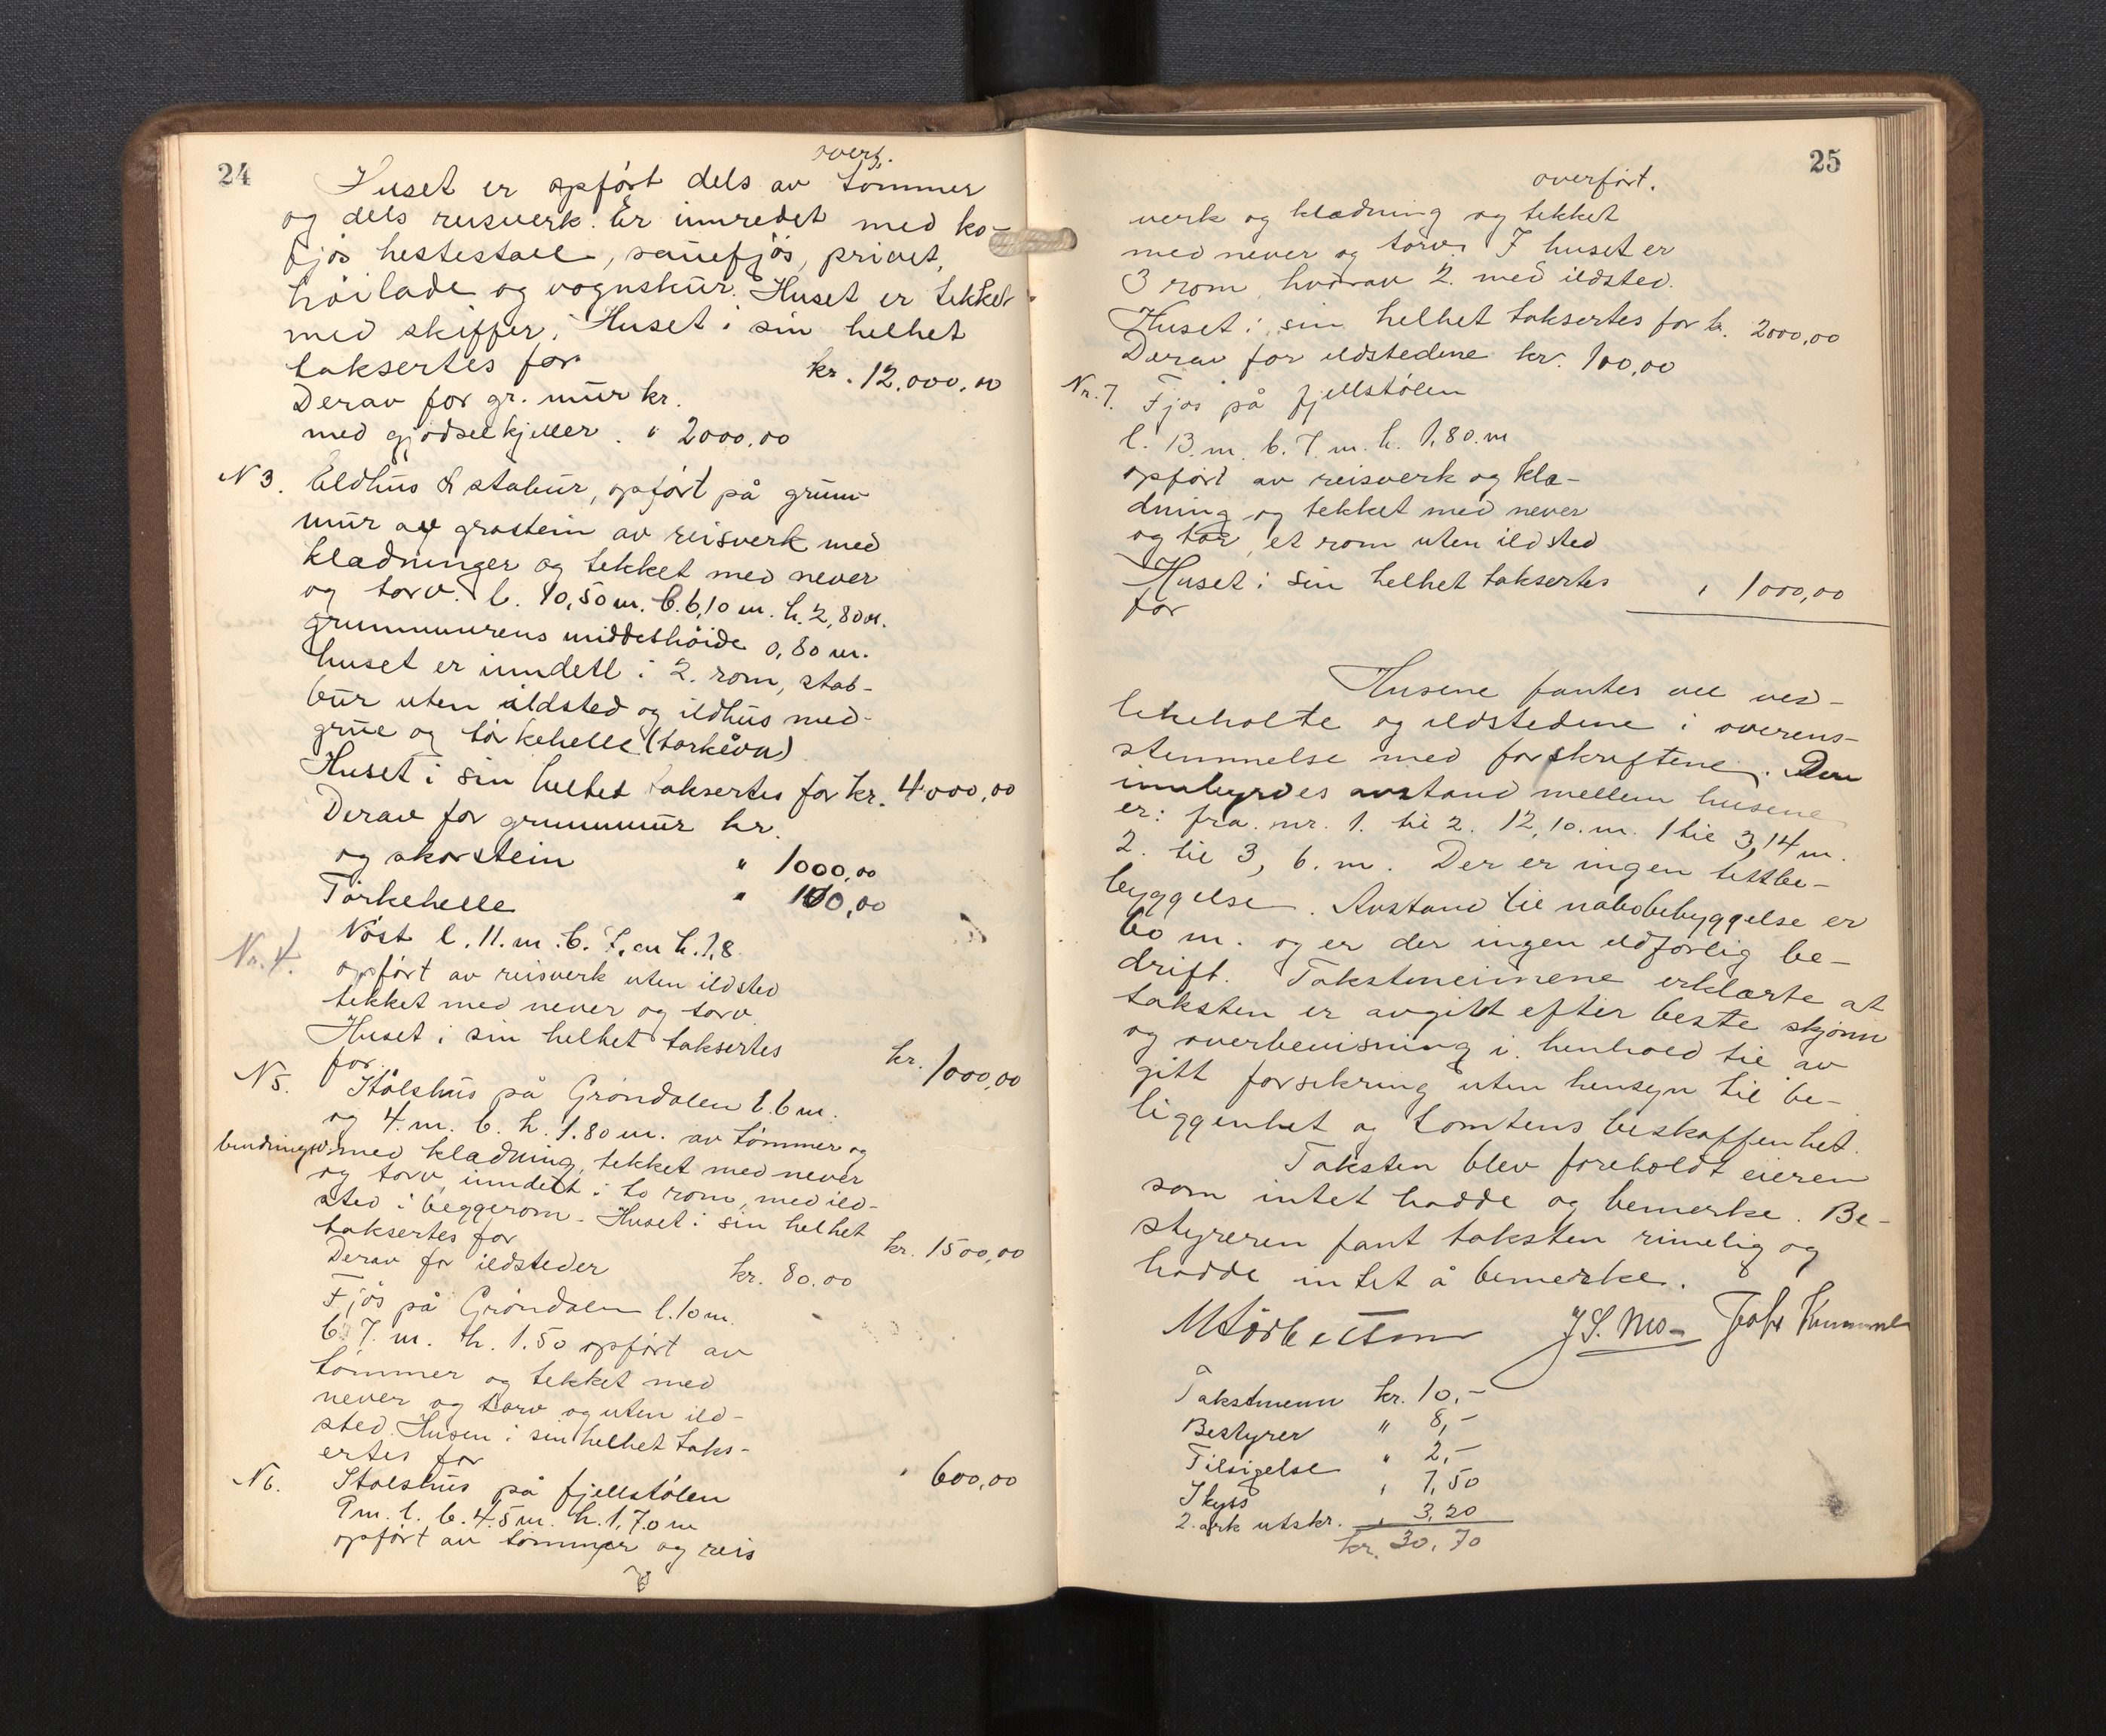 24
overf.
Huset er opført dels av tømmer
og dels reisverk. Er innredet med ko-
fjøs hestestall, sauefjøs, privet,
høilade og vognskur. Huset er tekket
med skiffer. Huset i sin helhet
taksertes for kr. 12.000,00
Derav for gr. mur kr.
med gjødselkjeller. " 2000,00
N 3. Eldhus & stabur, opført på grunn
mur av grastein av reisverk med
klædninger og tekket med never
og torv. l. 10,50 m. b. 6,10 m. h. 2,80 m.
grunnmurens middelshøide 0,80 m.
huset er inndelt i 2. rom, stab-
bur uten ildsted og ildhus med
grue og tørkehelle (torkeovn)
Huset i sin helhet taksertes for kr. 4000,00
Derav for grunnmur kr.
og skorstein " 1000,00
Tørkehelle " 100,00
Nr. 4. Nøst l. 11. m. b. 7. m h. 1,8
opført av reisverk uten ildsted
tekket med never og torv.
Huset i sin helhet taksertes
for kr. 1000,00
N 5. Stølshus på Grøndalen l. 6 m.
og 4. m. b. h. 1.80 m. av tømmer og
bindingsv. med klædning, tekket med never
og torv, inndelt i to rom, med ild-
sted i beggerom. Huset i sin helhet
taksertes for kr. 1500,00
Derav for ildsteder kr. 80.00
Fjøs på Grøndalen l. 10 m.
b. 7. m. h. 1.50 opført av
tømmer og tekket med
never og torv og uten ild-
sted. Husen i sin helhet taks-
ertes for " 600,00
N 6. Stølshus på fjellstølen
9 m. l. b. 4.5 m. h. 1.70 m
opført av tømmer og reis
25
overført.
verk og klædning og tekket
med never og torv. I huset er
3 rom, hvorav 2. med ildsted.
Huset i sin helhet taksertes for kr. 2000,00
Derav for ildstedene kr. 100,00
Nr. 7. Fjøs på fjellstølen
l. 13. m. b. 7. m. h. 1,80. m
opført av reisverk og klæ-
dning og tekket med never
og tor, et rom uten ildsted
Huset i sin helhet taksertes
for " 1000,00
Husene fantes vel ved-
likeholte og ildstedene i overens-
stemmelse med forskriftene. Den
innbyrdes avstand mellem husene
er: fra. nr. 1. til 2. 12,10. m. 1 til 3, 14 m.
2. til 3, 6. m. Der er ingen tettbe-
byggelse. Avstand til nabobebyggelse er
60 m. og er der ingen ildfarlig be-
drift. Takstmennene erklærte at
taksten er avgitt efter beste skjønn
og overbevisning i henhold til av
gitt forsikring uten hensyn til be-
liggenhet og tomtens beskaffenhet.
Taksten blev foreholdt eieren
som intet hadde og bemerke. Be-
styreren fant taksten rimelig og
hadde intet å bemerke.
J S. Mo
Takstmenn kr. 10,-
Bestyrer " 8,-
Tilsigelse " 2,-
Skyss " 7,50
2. ark utskr. " 3,20
kr. 30.70